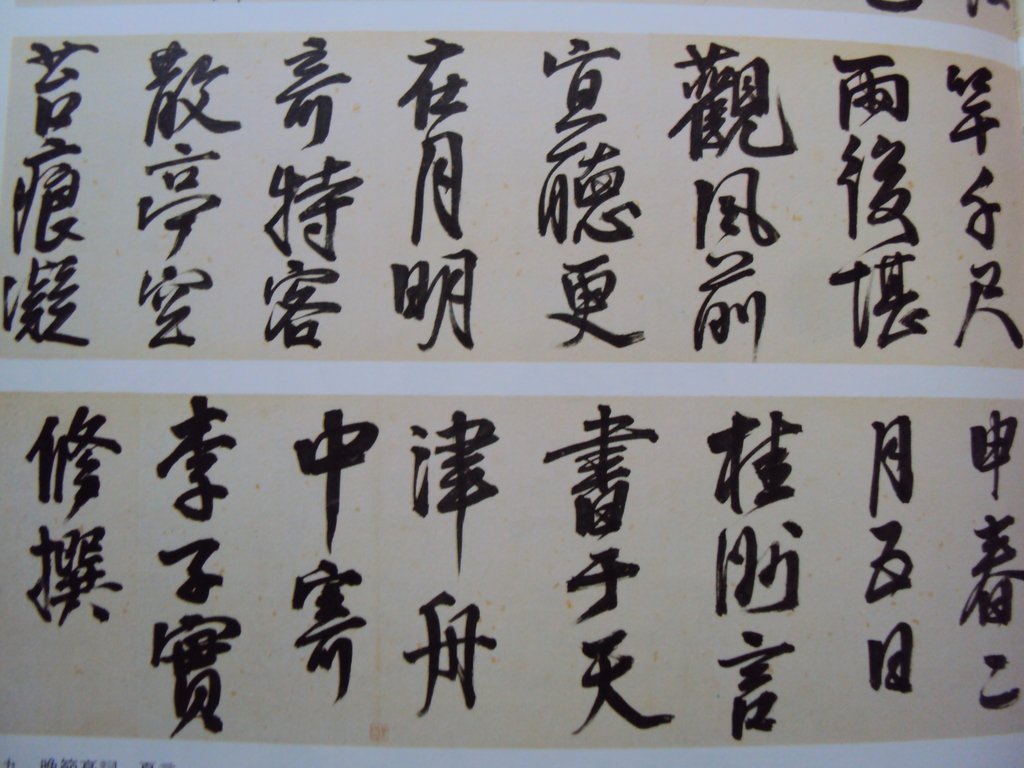 竿千尺
雨後堪
觀風前
宜聽更
在月明
奇特客
散亭空
苔痕凝
申春二
月五日
桂洲言
書于天
津舟
中寄
李子實
修撰